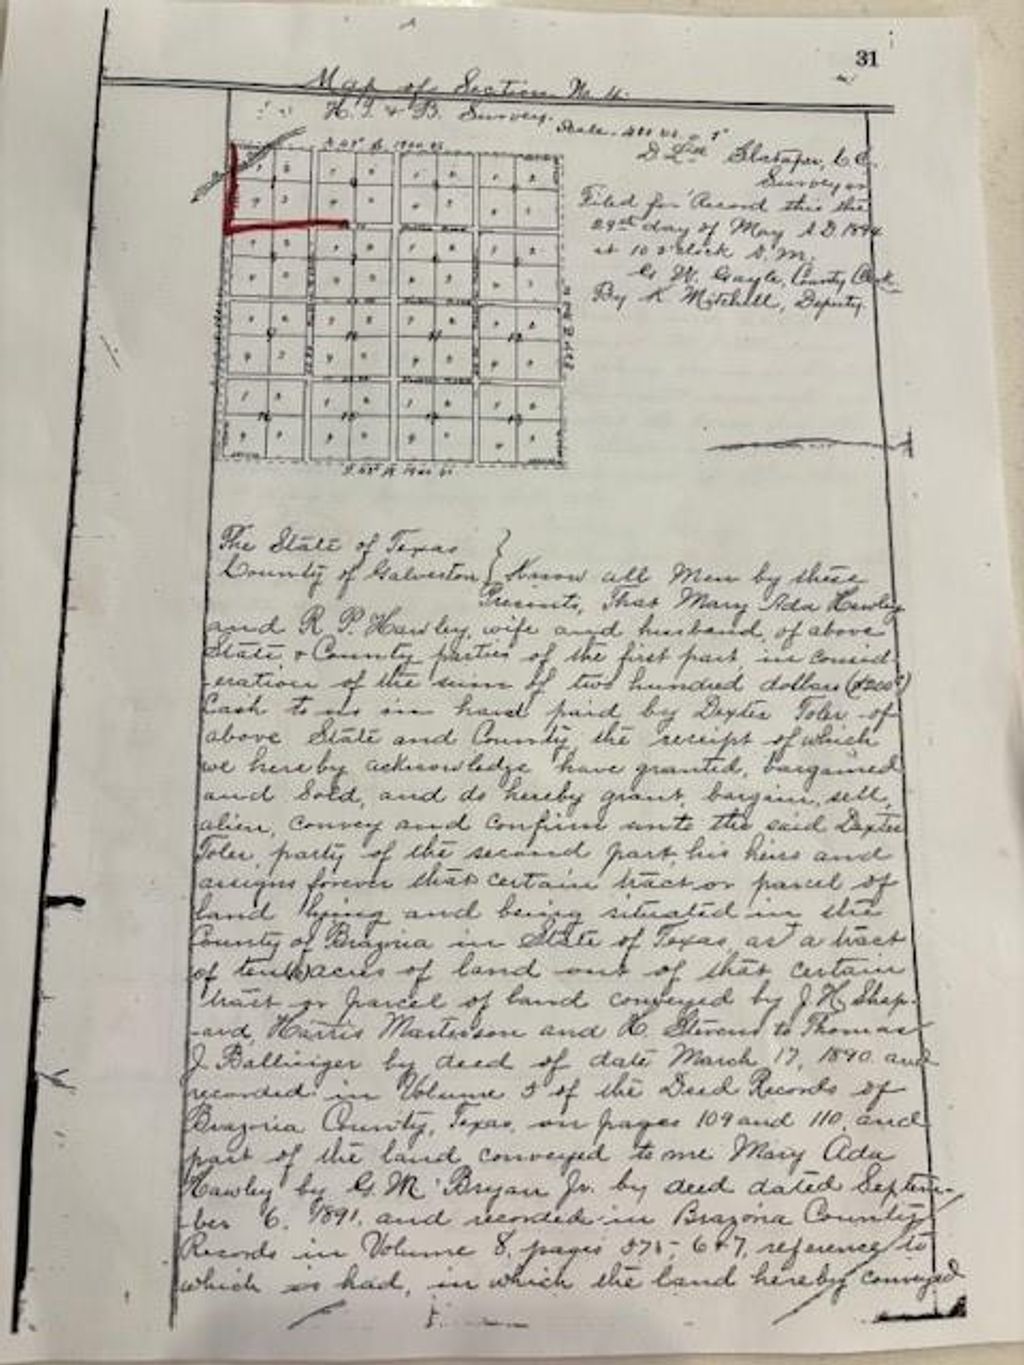 31
Map of Section No 11.
H. T. & B. Survey.
Scale
Surveyor
Filed for Record this the
29th day of May A.D. 1894
at 10 o'clock A.M.
G. W. Gayle, County Clerk
By K Mitchell, Deputy.
The State of Texas
County of Galveston } Know all Men by these
Presents, That Mary Ada Hawley
and R. P. Hawley, wife and husband, of above
State & County parties of the first part, in consid-
-eration of the sum of two hundred dollars ($200)
Cash to us in hand paid by Dexter Toler of
above State and County, the receipt of which
we hereby acknowledge have granted, bargained
and Sold, and do hereby grant, bargain, sell,
alien, convey and confirm unto the said Dexter
Toler, party of the second part, his heirs and
assigns forever that certain tract or parcel of
land lying and being situated in the
County of Brazoria in State of Texas as a tract
of ten acres of land out of that certain
tract or parcel of land conveyed by J. H. Shep-
-ard, Harris Masterson and K. Stevens to Thomas
J. Ballinger by deed of date March 17, 1890 and
recorded in Volume 5 of the Deed Records of
Brazoria County, Texas, on pages 109 and 110, and
part of the land conveyed to me Mary Ada
Hawley by G. M. Bryan Jr. by deed dated Septem-
-ber 6, 1891, and recorded in Brazoria County
Records in Volume 8, pages 575- 6 & 7, reference to
which is had, in which the land hereby conveyed